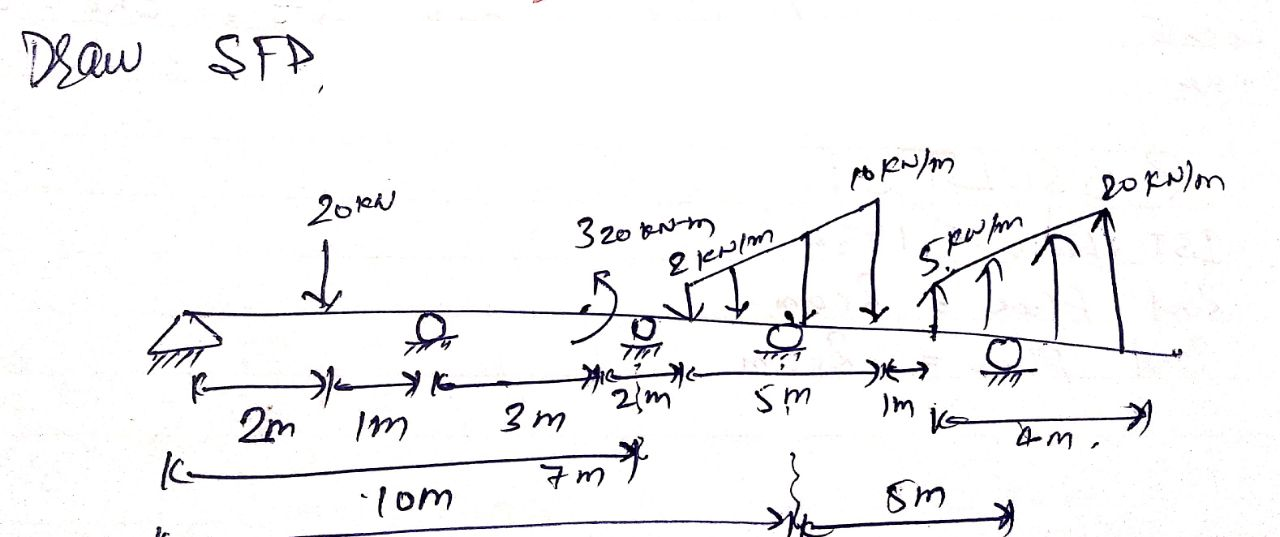 Draw SFD.
20 KN
320 KN-m
2 KN/m
10 KN/m
5 KN/m
20 KN/m
2m
1m
3m
2m
5m
1m
4m.
7m
10m
5m